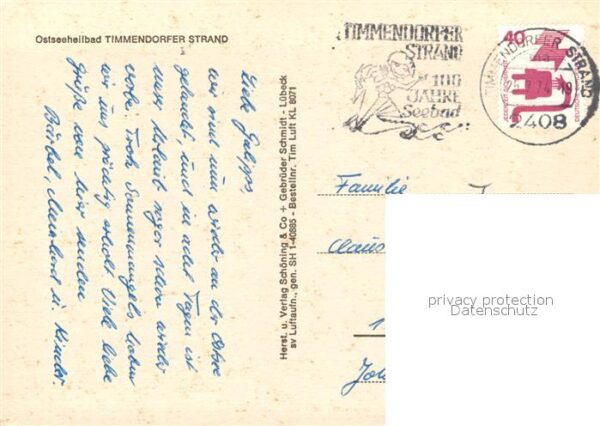 Ostseeheilbad TIMMENDORFER STRAND
TIMMENDORFER
STRAND
100
JAHRE
Seebad
40
TIMMENDORFER STRAND
2408
Liebe
wir sind nun wieder an der Ostsee
gelandet, und in acht Tagen ist
unser Urlaub sogar schon wieder
vorbei. Trotz Sonnenmangels haben
wir uns prächtig erholt. Viele liebe
Grüße von hier senden
Bärbel, u. Kinder.
Herst. u. Verlag Schöning & Co + Gebrüder Schmidt - Lübeck
sv Luftaufn., gen. SH 1-40885 - Bestellnr. Tim Luft KL 8071
Familie
Claus
privacy protection
Datenschutz